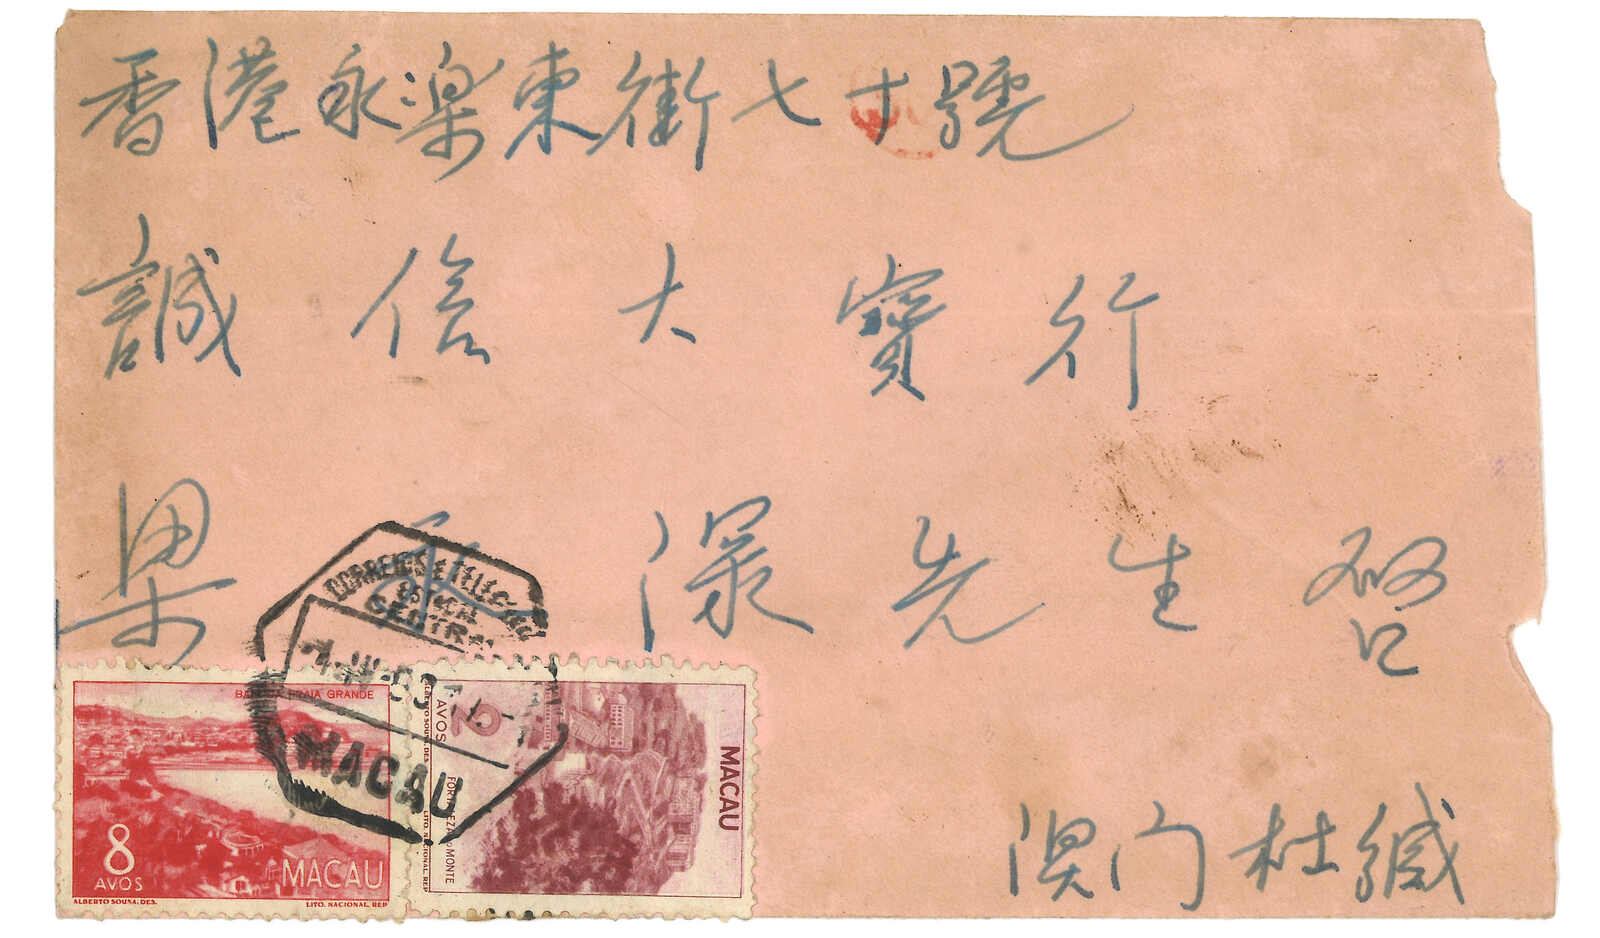 香港永樂東街七十號
誠信大寶行
梁永深先生啓
澳门杜緘
CORREIOS E TELEG
CENTRAL
MACAU
BAIA DA PRAIA GRANDE
8
AVOS
MACAU
ALBERTO SOUSA, DES.
LITO. NACIONAL. REP
MACAU
2
AVOS
FORTALEZA DO MONTE
ALBERTO SOUSA, DES.
LITO. NACIONAL. REP